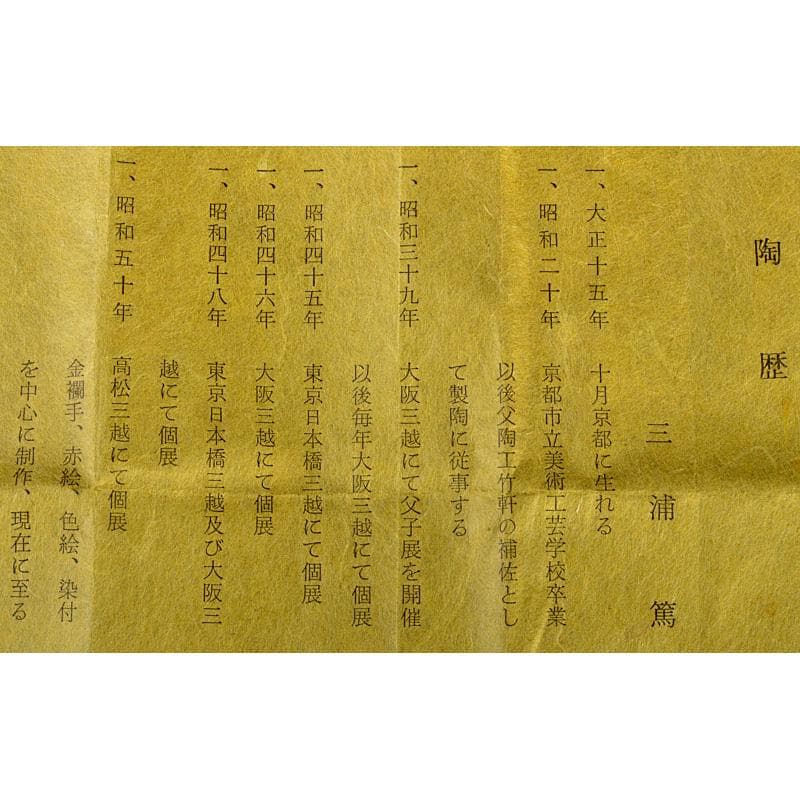 陶歴
三浦篤
一、大正十五年 十月京都に生れる
一、昭和二十年 京都市立美術工芸学校卒業
以後父陶工竹軒の補佐とし
て製陶に従事する
一、昭和三十九年 大阪三越にて父子展を開催
以後毎年大阪三越にて個展
一、昭和四十五年 東京日本橋三越にて個展
一、昭和四十六年 大阪三越にて個展
一、昭和四十八年 東京日本橋三越及び大阪三
越にて個展
一、昭和五十年 高松三越にて個展
金襴手、赤絵、色絵、染付
を中心に制作、現在に至る